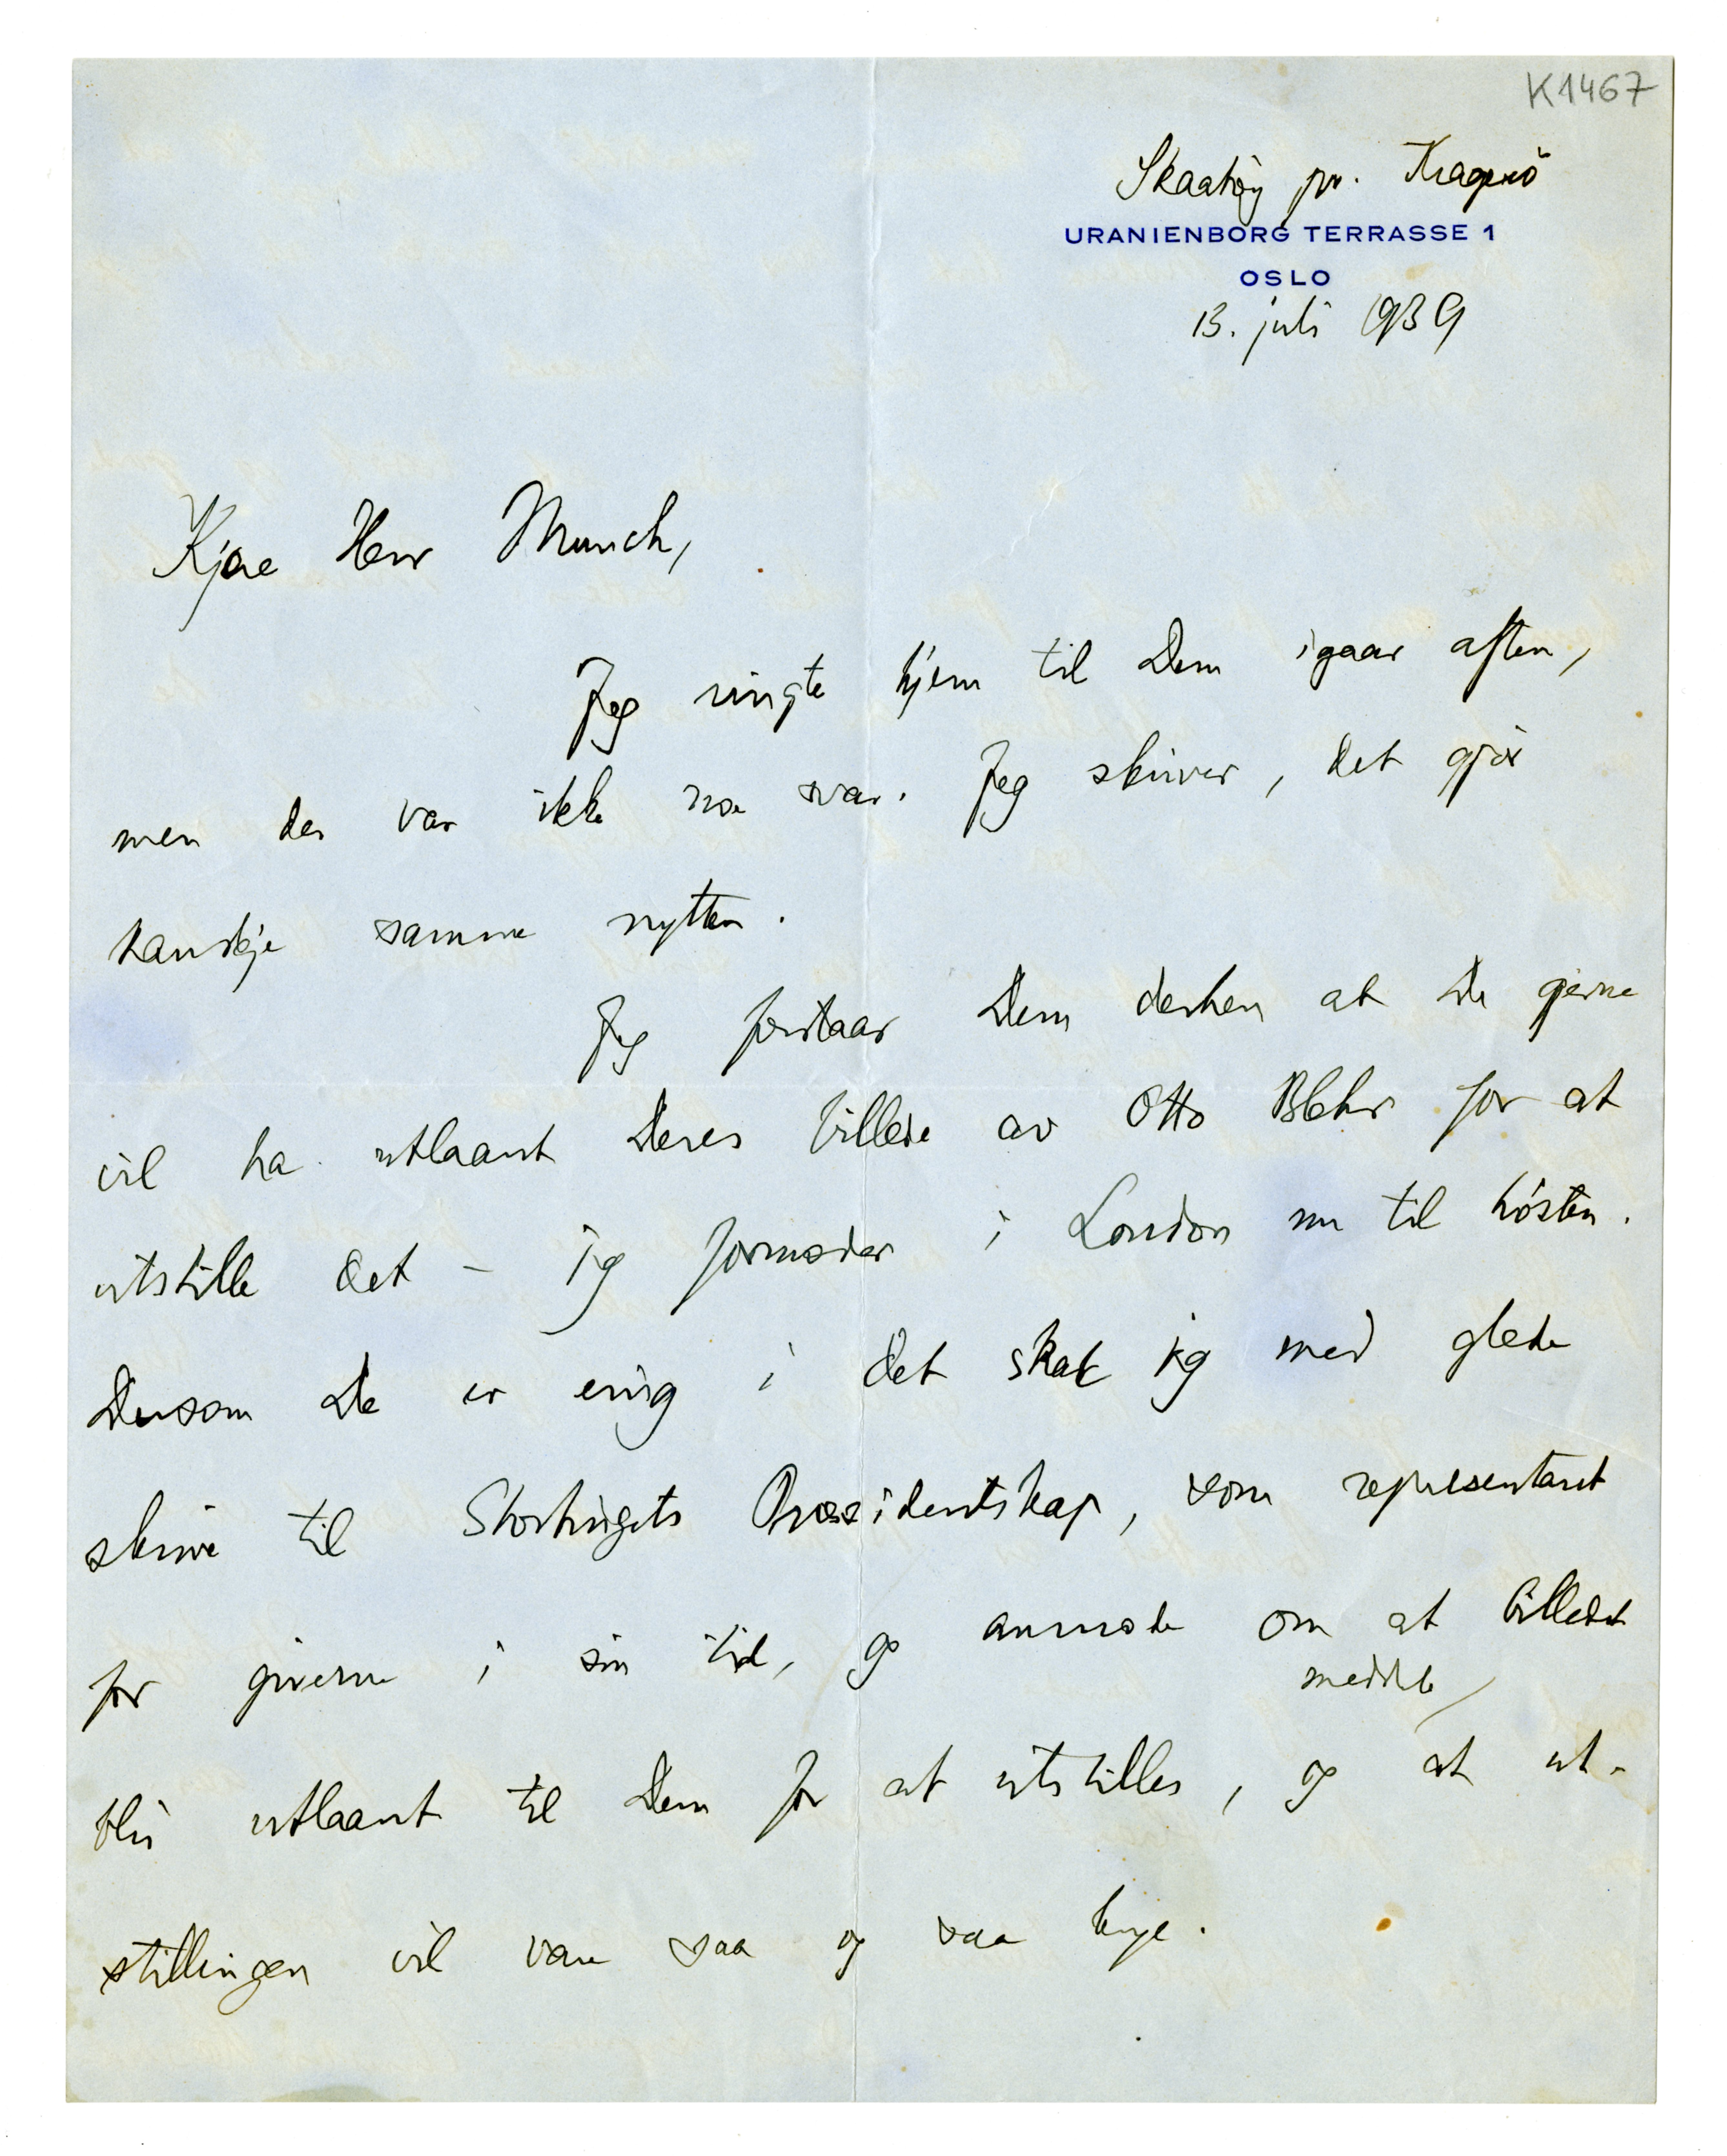 K1467
Skaatøy pr. Kragerö
URANIENBORG TERRASSE 1
OSLO
13. juli 1939
Kjære Herr Munch,
Jeg ringte hjem til Dem igaar aften,
men der var ikke noe svar. Jeg skriver, det gjör
kanskje samme nytten.
Jeg forstaar Dem derhen at De gjerne
vil ha utlaant Deres billede av Otto Blehr for at
utstille det – jeg formoder i London nu til hösten.
Dersom De er enig i det skal jeg med glede
skrive til Stortingets Præsidentskap, som representant
for giverne i sin tid, og anmode om at billedet
meddele
bli utlaant til Dem for at utstilles, og at ut-
stillingen vil vare saa og saa lenge.